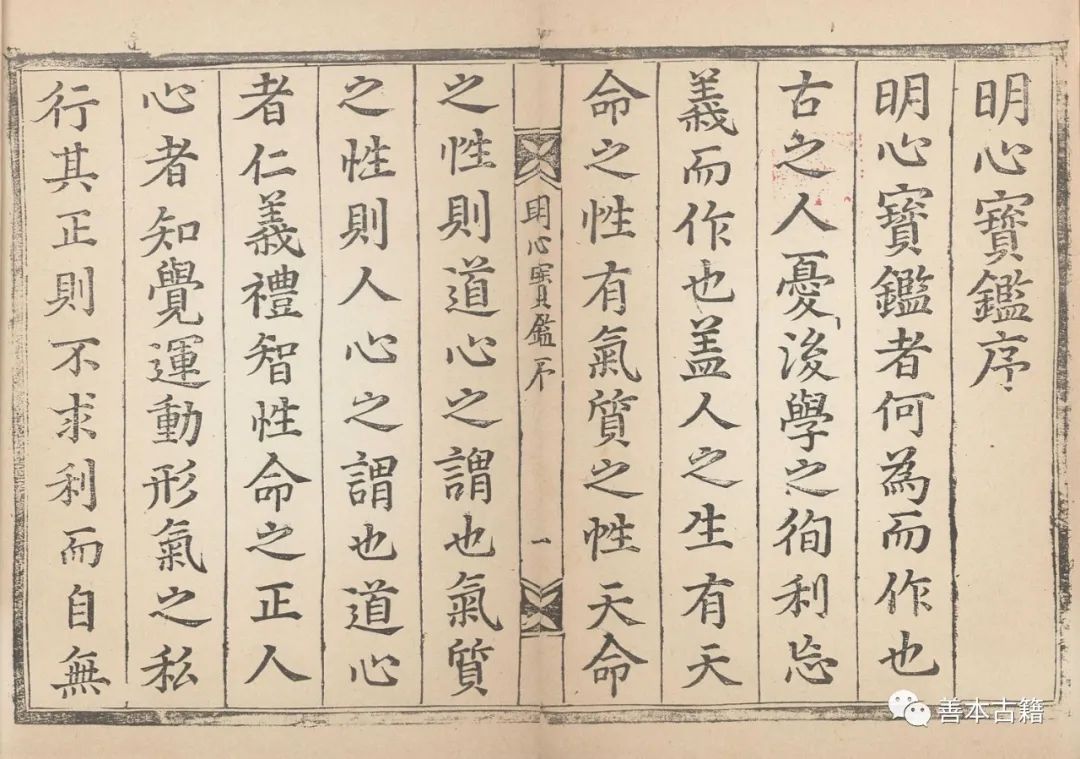 明心寶鑑序
明心寶鑑者何為而作也
古之人憂後學之徇利忘
義而作也盖人之生有天
命之性有氣質之性天命
明心寳鑑序
一
之性則道心之謂也氣質
之性則人心之謂也道心
者仁義禮智性命之正人
心者知覺運動形氣之私
行其正則不求利而自無
善本古籍